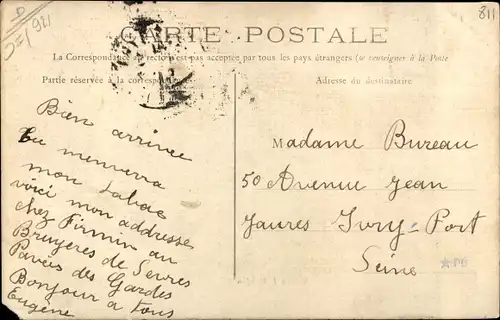 811
CARTE POSTALE
La Correspondance au recto n'est pas acceptée par tous les pays étrangers (se renseigner à la Poste
Partie réservée à la correspondance
Adresse du destinataire
Bien arrivée
tu menverra
mon tabac
voici mon addresse
chez Firmin au
Bruyeres de Sevres
Paveis des Gardes
Bonjour a tous
Eugene
Madame Bureau
50 Avenue Jean
Jaures Ivry-Port
Seine